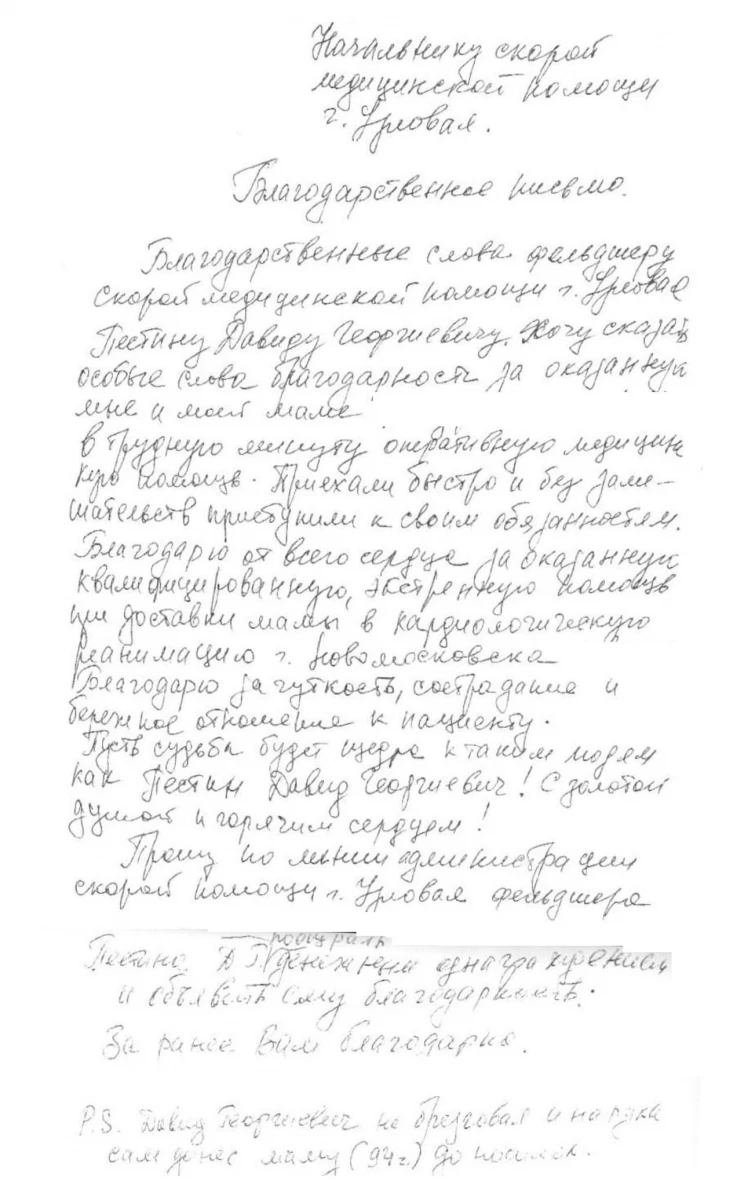 Начальнику скорой
медицинской помощи
г. Узловая.
Благодарственное письмо.
Благодарственные слова фельдшеру
скорой медицинской помощи г. Узловая
Пестину Давиду Георгиевичу. Хочу сказать
особые слова благодарность за оказанную
мне и моей маме
в трудную минуту оперативную медицин
кую помощь. Приехали быстро и без заме-
шательств приступили к своим обязанностям.
Благодарю от всего сердца за оказанную
квалифицированную, экстренную помощь
при доставки мамы в кардиологическую
реанимацию г. Новомосковска
Благодарю за чуткость, сострадание и
бережное отношение к пациенту.
Пусть судьба будет щедра к таким людям
как Пестин Давид Георгиевич! С золотой
душой и горячим сердцем!
Прошу по линии администрации
скорой помощи г. Узловая фельдшера
поощрить
Пестина Д Г денежным вознаграждением
и объявить ему благодарность.
За ранее Вам благодарна.
P.S. Давид Георгиевич не брезговал и на руках
сам донес маму (94 г.) до носилок.